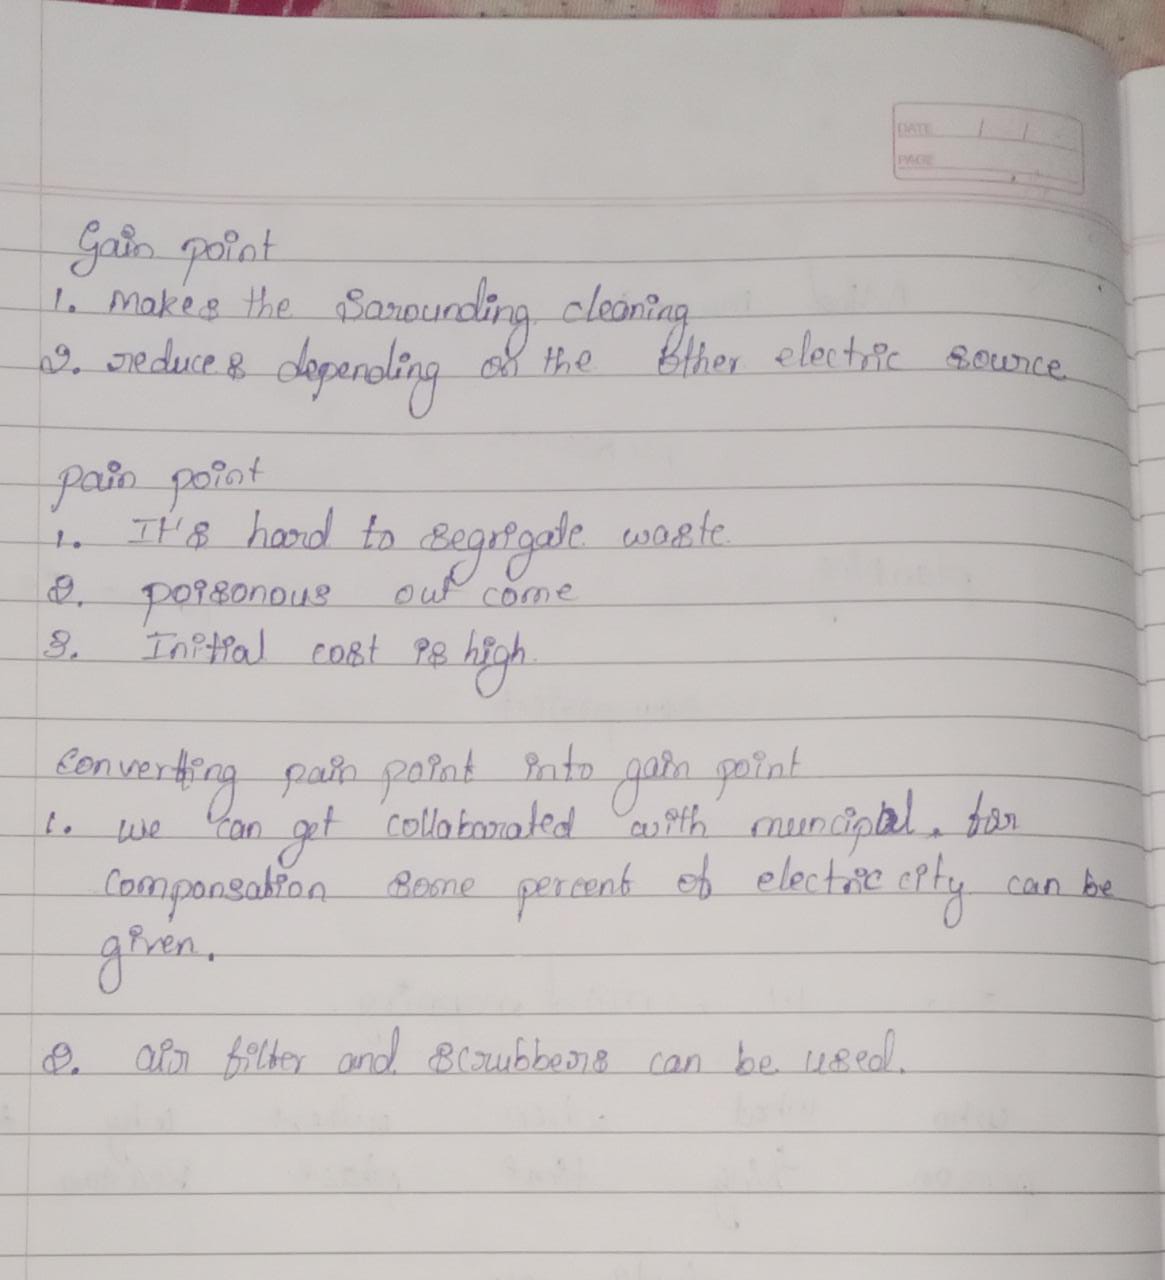 DATE
PAGE
Gain point
1. makes the sarounding cleaning
2. reduces depending on the other electric source
pain point
1. It's hard to segregate waste.
2. poisonous out come
3. Initial cost is high.
converting pain point into gain point
1. we can get collaborated with muncipal. for
componsation some percent of electriccity can be
given.
2. air filter and scrubbers can be used.